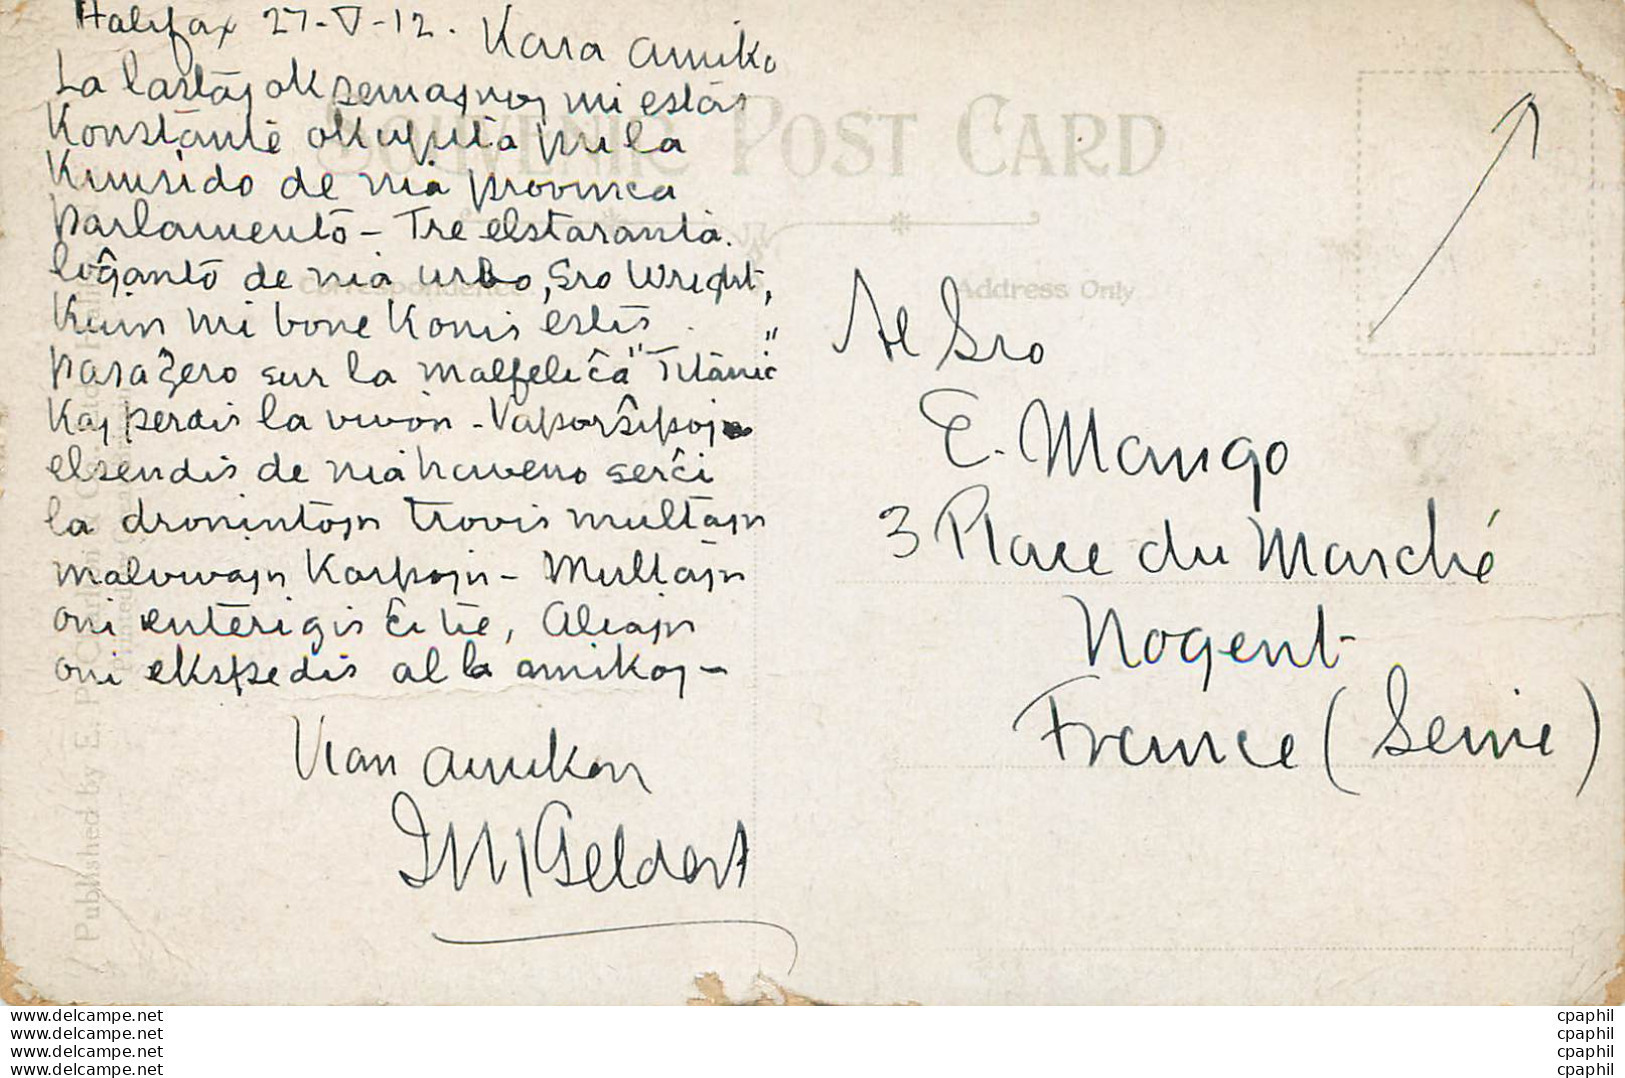 Halifax 27-V-12. Kara amiko
La lastaj ok semajnoj mi estas
Konstante okupita pri la
Kunsido de nia provinca
parlamento - Tre elstaranta
loĝanto de nia urbo, Sro Wright,
Kiun mi bone Konis estis
pasaĝero sur la malfeliĉa "Titanic"
Kaj perdis la vivon - Vaporŝipoj
elsendis de nia haveno serĉi
la dronintojn trovis multajn
malvivajn Korpojn - Multajn
oni enterigis ĉi tie, Aliajn
oni ekspedis al la amikoj -
Vian amikon
Geldert
SOUVENIR POST CARD
Correspondence
Address Only
Al Sro
E. Mango
3 Place du Marché
Nogent
France (Seine)
Published by E. P.
www.delcampe.net
www.delcampe.net
www.delcampe.net
www.delcampe.net
cpaphil
cpaphil
cpaphil
cpaphil